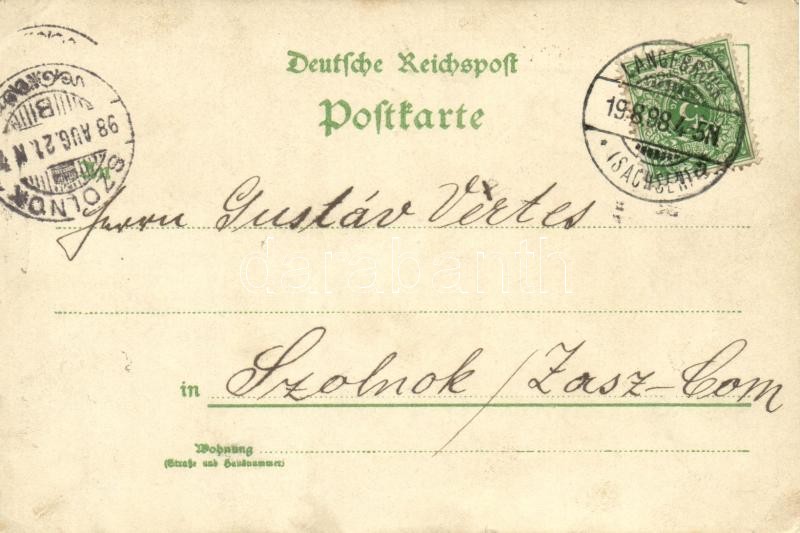 Deutsche Reichspost
Postkarte
LANGEBRÜCK
19.8.98.4-5N
* (SACHSEN) *
5
SZOLNOK
98 AUG. 21. N
Herrn Gustáv Vértes
darabanth
in Szolnok / Zasz-Com
Wohnung
(Straße und Hausnummer)